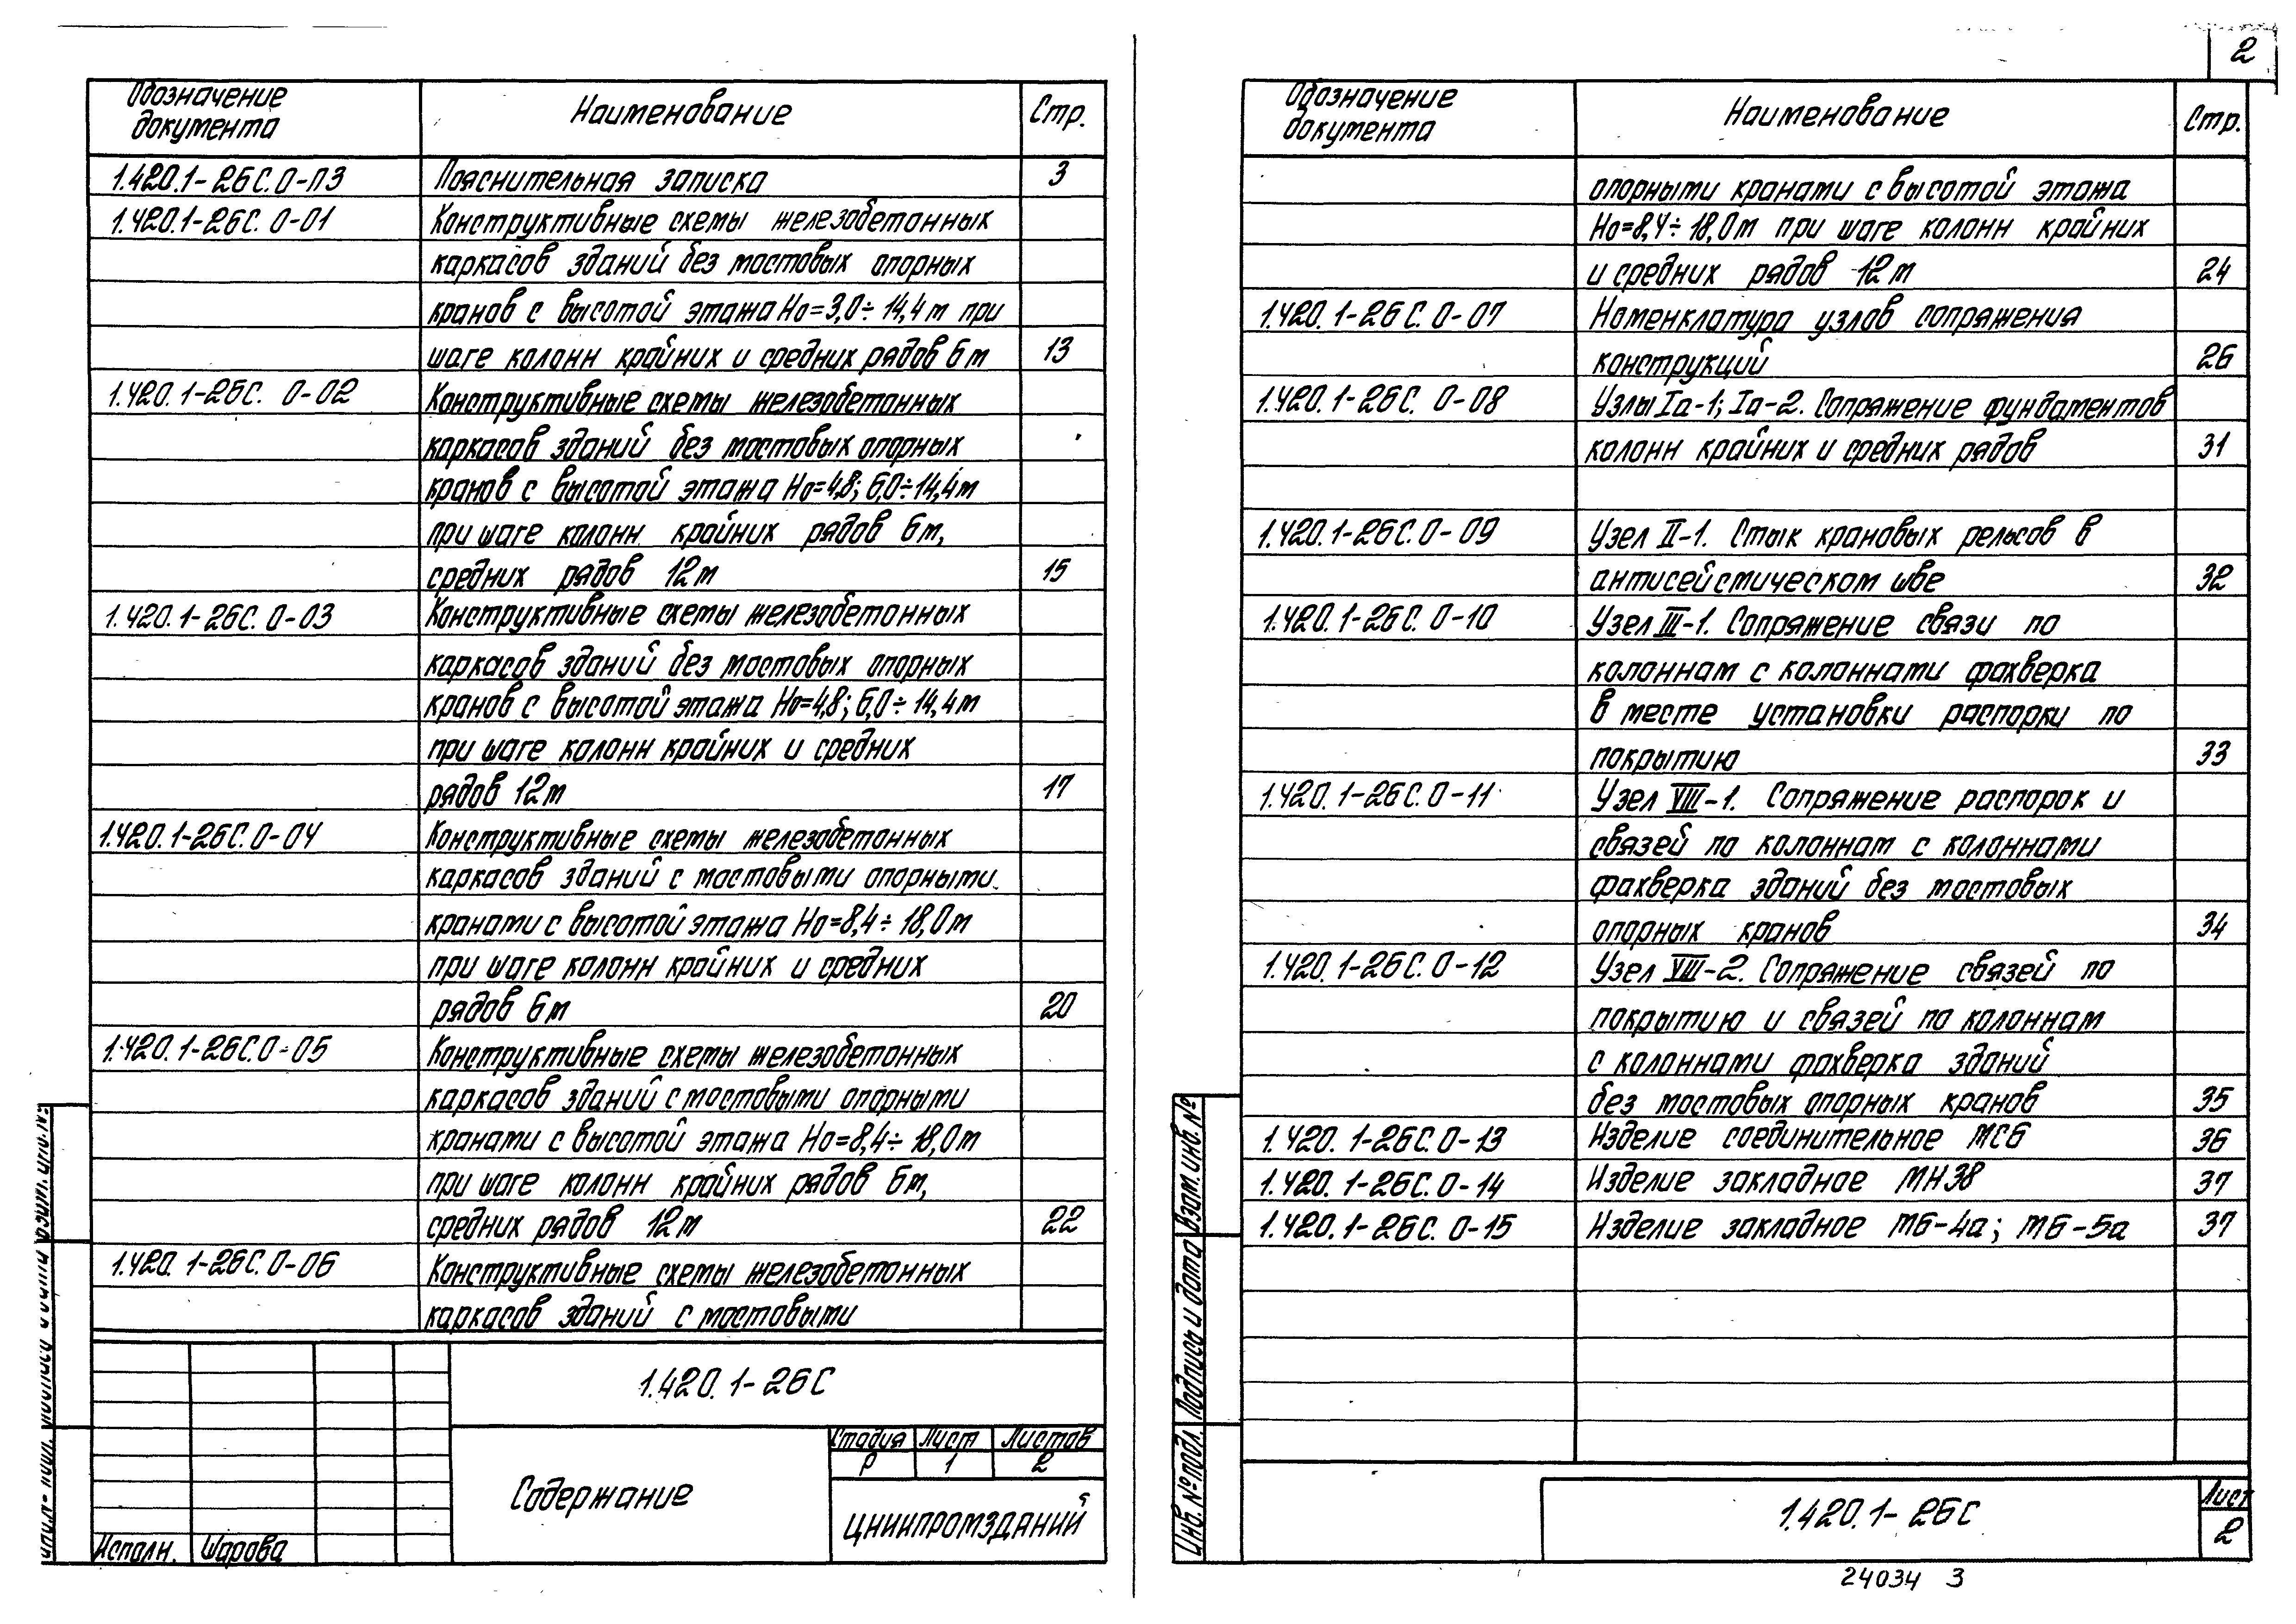 Обозначение документа Наименование Стр.
1.420.1-26С.0-ПЗ Пояснительная записка 3
1.420.1-26С. 0-01 Конструктивные схемы железобетонных
каркасов зданий без мостовых опорных
кранов с высотой этажа Но=3,0÷14,4м при
шаге колонн крайних и средних рядов 6м 13
1.420.1-26С. 0-02 Конструктивные схемы железобетонных
каркасов зданий без мостовых опорных
кранов с высотой этажа Но=4,8; 6,0÷14,4м
при шаге колонн крайних рядов 6м,
средних рядов 12м 15
1.420.1-26С. 0-03 Конструктивные схемы железобетонных
каркасов зданий без мостовых опорных
кранов с высотой этажа Но=4,8; 6,0÷14,4м
при шаге колонн крайних и средних
рядов 12м 17
1.420.1-26С.0-04 Конструктивные схемы железобетонных
каркасов зданий с мостовыми опорными
кранами с высотой этажа Но=8,4÷18,0м
при шаге колонн крайних и средних
рядов 6м 20
1.420.1-26С.0-05 Конструктивные схемы железобетонных
каркасов зданий с мостовыми опорными
кранами с высотой этажа Но=8,4÷18,0м
при шаге колонн крайних рядов 6м,
средних рядов 12м 22
1.420.1-26С.0-06 Конструктивные схемы железобетонных
каркасов зданий с мостовыми
1.420.1-26С
Содержание
Стадия Лист Листов
Р 1 2
ЦНИИПРОМЗДАНИЙ
Исполн. Шарова
2
Обозначение документа Наименование Стр.
опорными кранами с высотой этажа
Но=8,4÷18,0м при шаге колонн крайних
и средних рядов 12м 24
1.420.1-26С.0-07 Номенклатура узлов сопряжения
конструкций 26
1.420.1-26С. 0-08 Узлы Iа-1; Iа-2. Сопряжение фундаментов
колонн крайних и средних рядов 31
1.420.1-26С.0-09 Узел II-1. Стык крановых рельсов в
антисейсмическом шве 32
1.420.1-26С.0-10 Узел III-1. Сопряжение связи по
колоннам с колоннами фахверка
в месте установки распорки по
покрытию 33
1.420.1-26С.0-11 Узел VIII-1. Сопряжение распорок и
связей по колоннам с колоннами
фахверка зданий без мостовых
опорных кранов 34
1.420.1-26С.0-12 Узел VIII-2. Сопряжение связей по
покрытию и связей по колоннам
с колоннами фахверка зданий
без мостовых опорных кранов 35
1.420.1-26С.0-13 Изделие соединительное МС6 36
1.420.1-26С.0-14 Изделие закладное МН38 37
1.420.1-26С. 0-15 Изделие закладное М6-4а; М6-5а 37
Инв. № подл. Подпись и дата Взам. инв. №
1.420.1-26С
Лист
2
24034 3